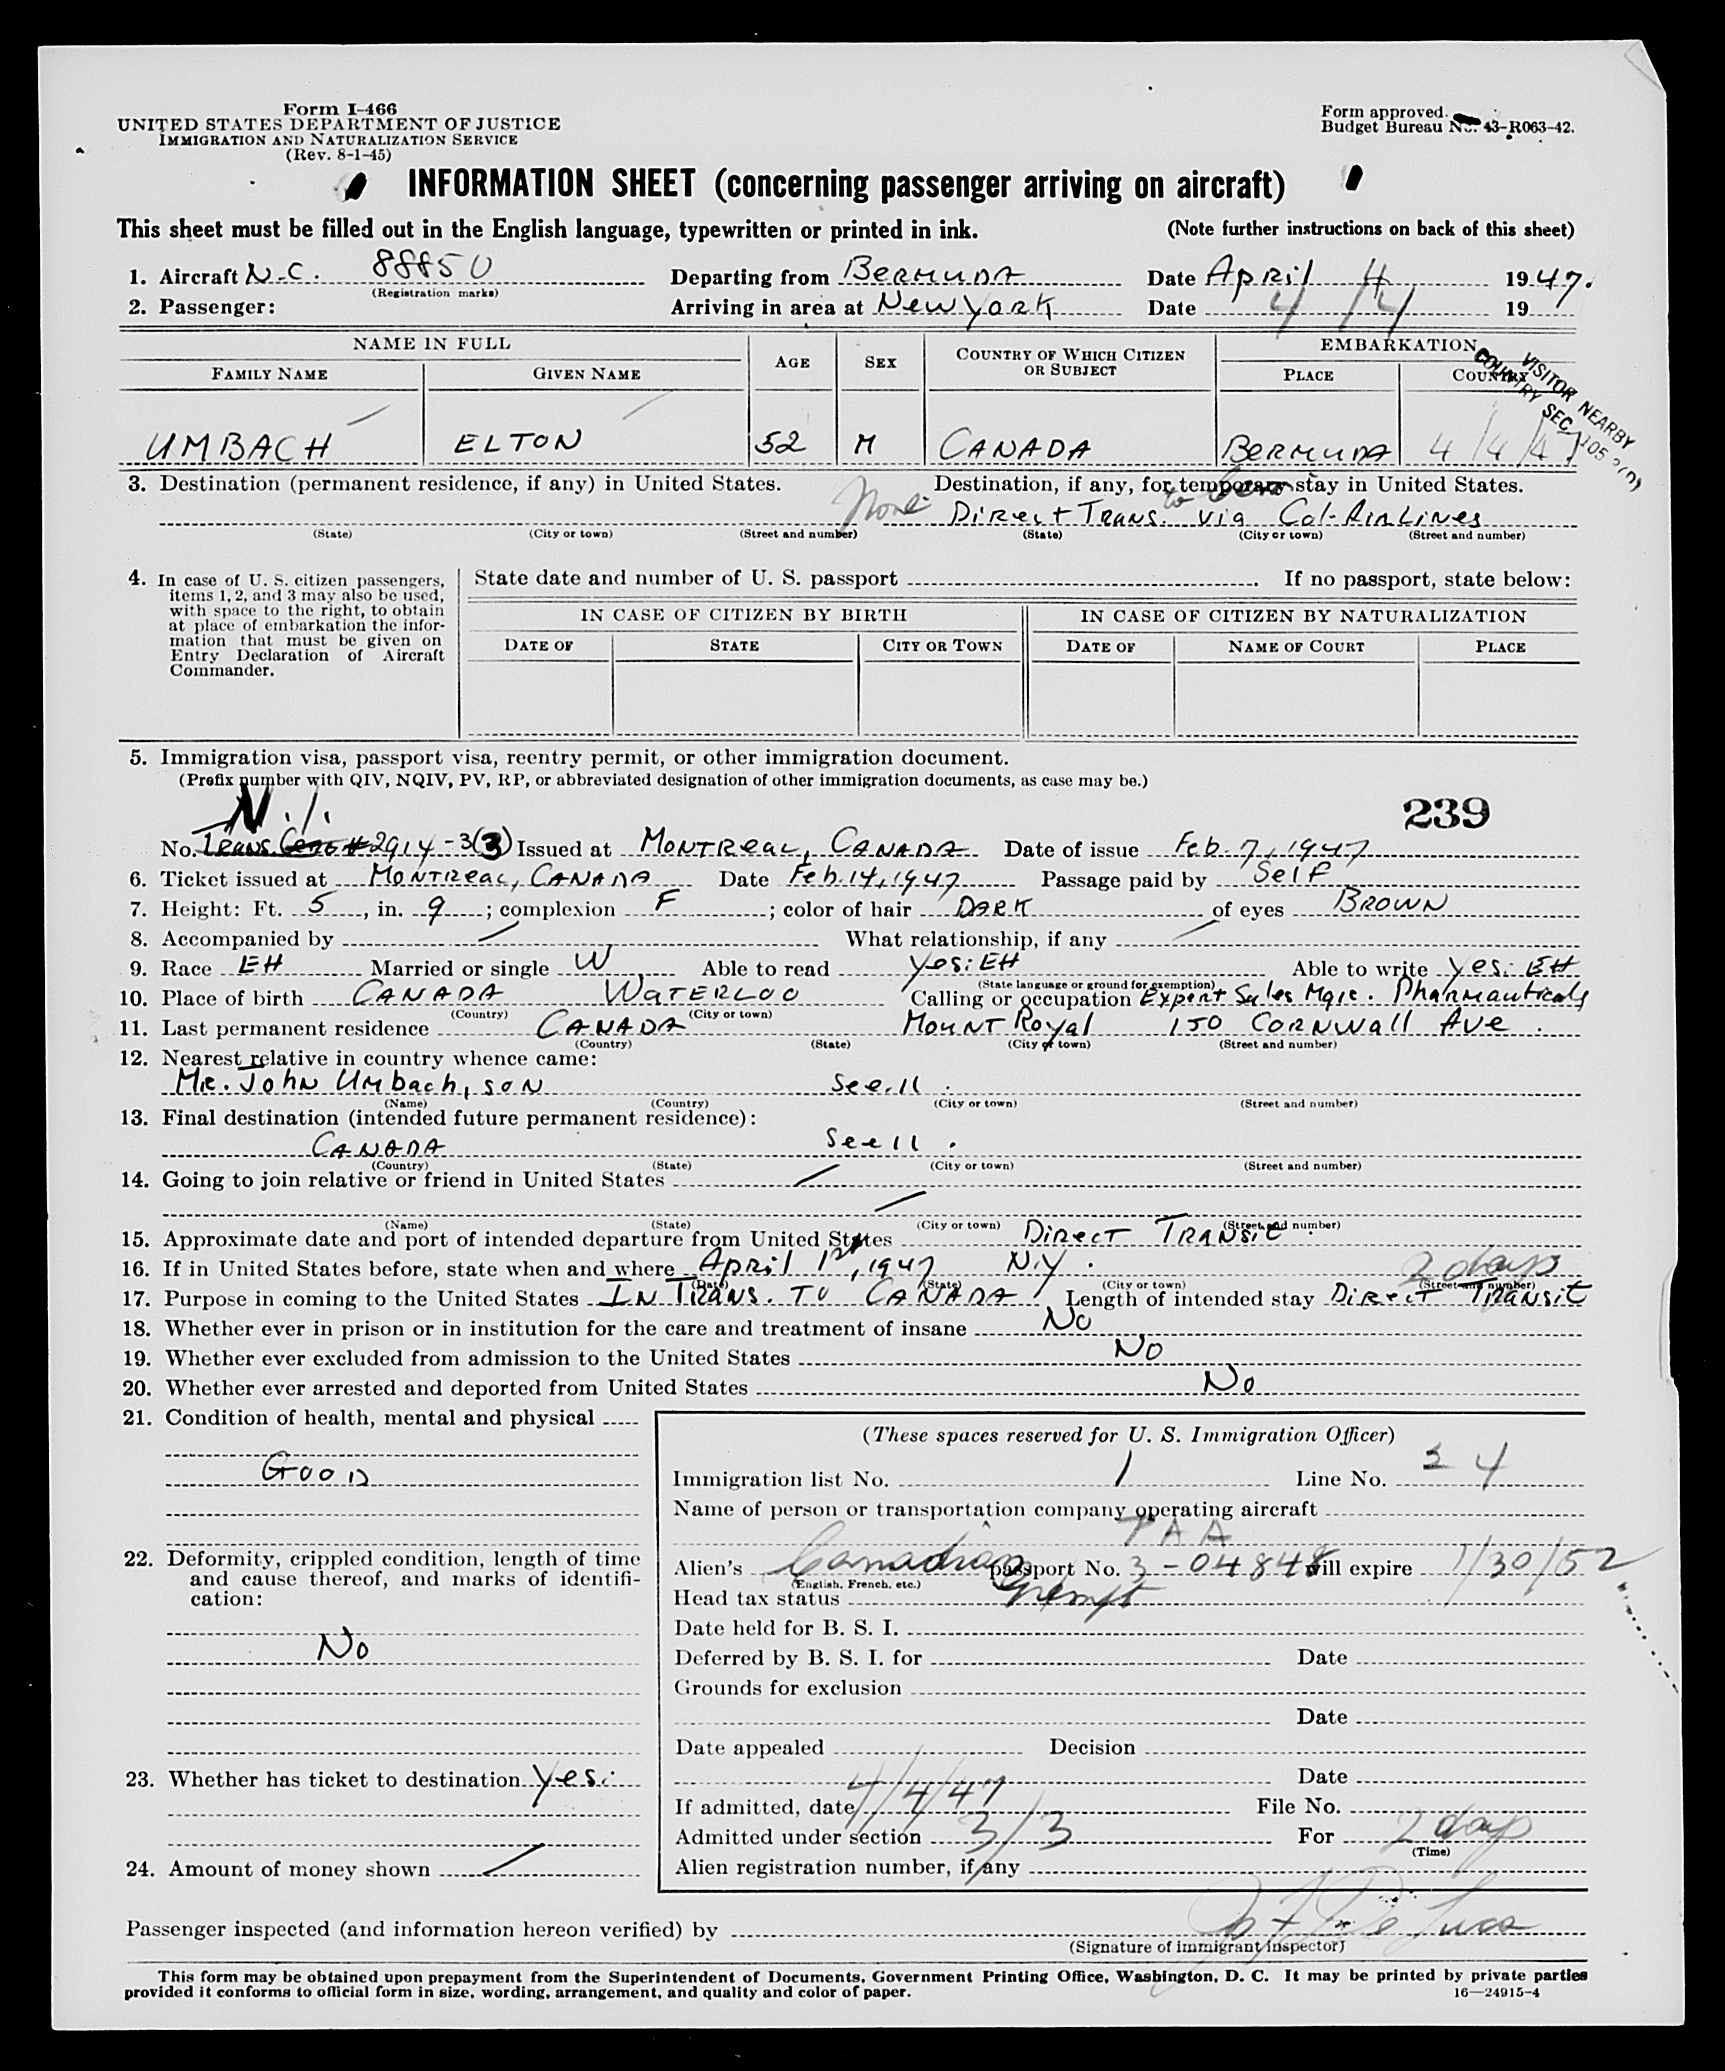 Form I-466
UNITED STATES DEPARTMENT OF JUSTICE
IMMIGRATION AND NATURALIZATION SERVICE
(Rev. 8-1-45)
Form approved.
Budget Bureau No. 43-R063-42.
INFORMATION SHEET (concerning passenger arriving on aircraft)
This sheet must be filled out in the English language, typewritten or printed in ink. (Note further instructions on back of this sheet)
1. Aircraft N.C. 88850 Departing from BERMUDA Date April 4 1947.
(Registration marks)
2. Passenger: Arriving in area at New York Date 4/4 19
NAME IN FULL AGE SEX COUNTRY OF WHICH CITIZEN OR SUBJECT EMBARKATION
FAMILY NAME GIVEN NAME PLACE COUNTRY
VISITOR NEARBY
COUNTRY SEC.
UMBACH ELTON 52 M CANADA BERMUDA 4/4/47
3. Destination (permanent residence, if any) in United States. Destination, if any, for temporary stay in United States.
None Direct Trans. via Col. AirLines
(State) (City or town) (Street and number) (State) (City or town) (Street and number)
4. In case of U. S. citizen passengers, items 1, 2, and 3 may also be used, with space to the right, to obtain at place of embarkation the information that must be given on Entry Declaration of Aircraft Commander.
State date and number of U. S. passport If no passport, state below:
IN CASE OF CITIZEN BY BIRTH IN CASE OF CITIZEN BY NATURALIZATION
DATE OF STATE CITY OR TOWN DATE OF NAME OF COURT PLACE
5. Immigration visa, passport visa, reentry permit, or other immigration document.
(Prefix number with QIV, NQIV, PV, RP, or abbreviated designation of other immigration documents, as case may be.)
Nil. 239
No. Trans. Cert # 2914-3(3) Issued at Montreal, Canada Date of issue Feb. 7, 1947
6. Ticket issued at Montreal, Canada Date Feb. 14, 1947 Passage paid by Self
7. Height: Ft. 5, in. 9; complexion F; color of hair DARK of eyes BROWN
8. Accompanied by / What relationship, if any /
9. Race EH Married or single W Able to read yes: EH Able to write yes: EH
(State language or ground for exemption)
10. Place of birth CANADA WATERLOO Calling or occupation Export Sales Mgr. Pharmauticals
(Country) (City or town)
11. Last permanent residence CANADA Mount Royal 150 Cornwall Ave.
(Country) (State) (City or town) (Street and number)
12. Nearest relative in country whence came:
Mr. John Umbach, son See 11.
(Name) (Country) (City or town) (Street and number)
13. Final destination (intended future permanent residence):
CANADA See 11.
(Country) (State) (City or town) (Street and number)
14. Going to join relative or friend in United States /
/
(Name) (State) (City or town) (Street and number)
15. Approximate date and port of intended departure from United States Direct Transit.
16. If in United States before, state when and where April 1st, 1947 N.Y. 2 days
(Date) (State) (City or town) (Street and number)
17. Purpose in coming to the United States In Trans. to CANADA Length of intended stay Direct Transit
18. Whether ever in prison or in institution for the care and treatment of insane No
19. Whether ever excluded from admission to the United States No
20. Whether ever arrested and deported from United States No
21. Condition of health, mental and physical
Good
22. Deformity, crippled condition, length of time and cause thereof, and marks of identification:
No
23. Whether has ticket to destination Yes.
24. Amount of money shown /
(These spaces reserved for U. S. Immigration Officer)
Immigration list No. 1 Line No. 4
Name of person or transportation company operating aircraft
PAA
Alien's Canadian passport No. 3-04848 will expire 1/30/52
(English, French, etc.)
Head tax status exempt
Date held for B. S. I.
Deferred by B. S. I. for Date
Grounds for exclusion
Date
Date appealed Decision
Date
If admitted, date 4/4/47 File No.
Admitted under section 3/3 For 2 days
(Time)
Alien registration number, if any
Passenger inspected (and information hereon verified) by
(Signature of immigrant inspector)
This form may be obtained upon prepayment from the Superintendent of Documents, Government Printing Office, Washington, D. C. It may be printed by private parties
provided it conforms to official form in size, wording, arrangement, and quality and color of paper. 16—24915-4